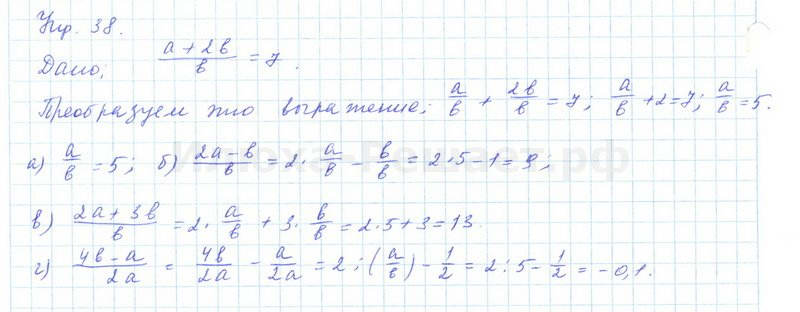 Упр. 38.
Дано; (a + 2b)/b = 7.
Преобразуем это выражение; a/b + 2b/b = 7; a/b + 2 = 7; a/b = 5.
а) a/b = 5; б) (2a - b)/b = 2 · a/b - b/b = 2 · 5 - 1 = 9;
в) (2a + 3b)/b = 2 · a/b + 3 · b/b = 2 · 5 + 3 = 13.
г) (4b - a)/2a = 4b/2a - a/2a = 2 : (a/b) - 1/2 = 2 : 5 - 1/2 = -0,1.
Илюха-Решает.рф